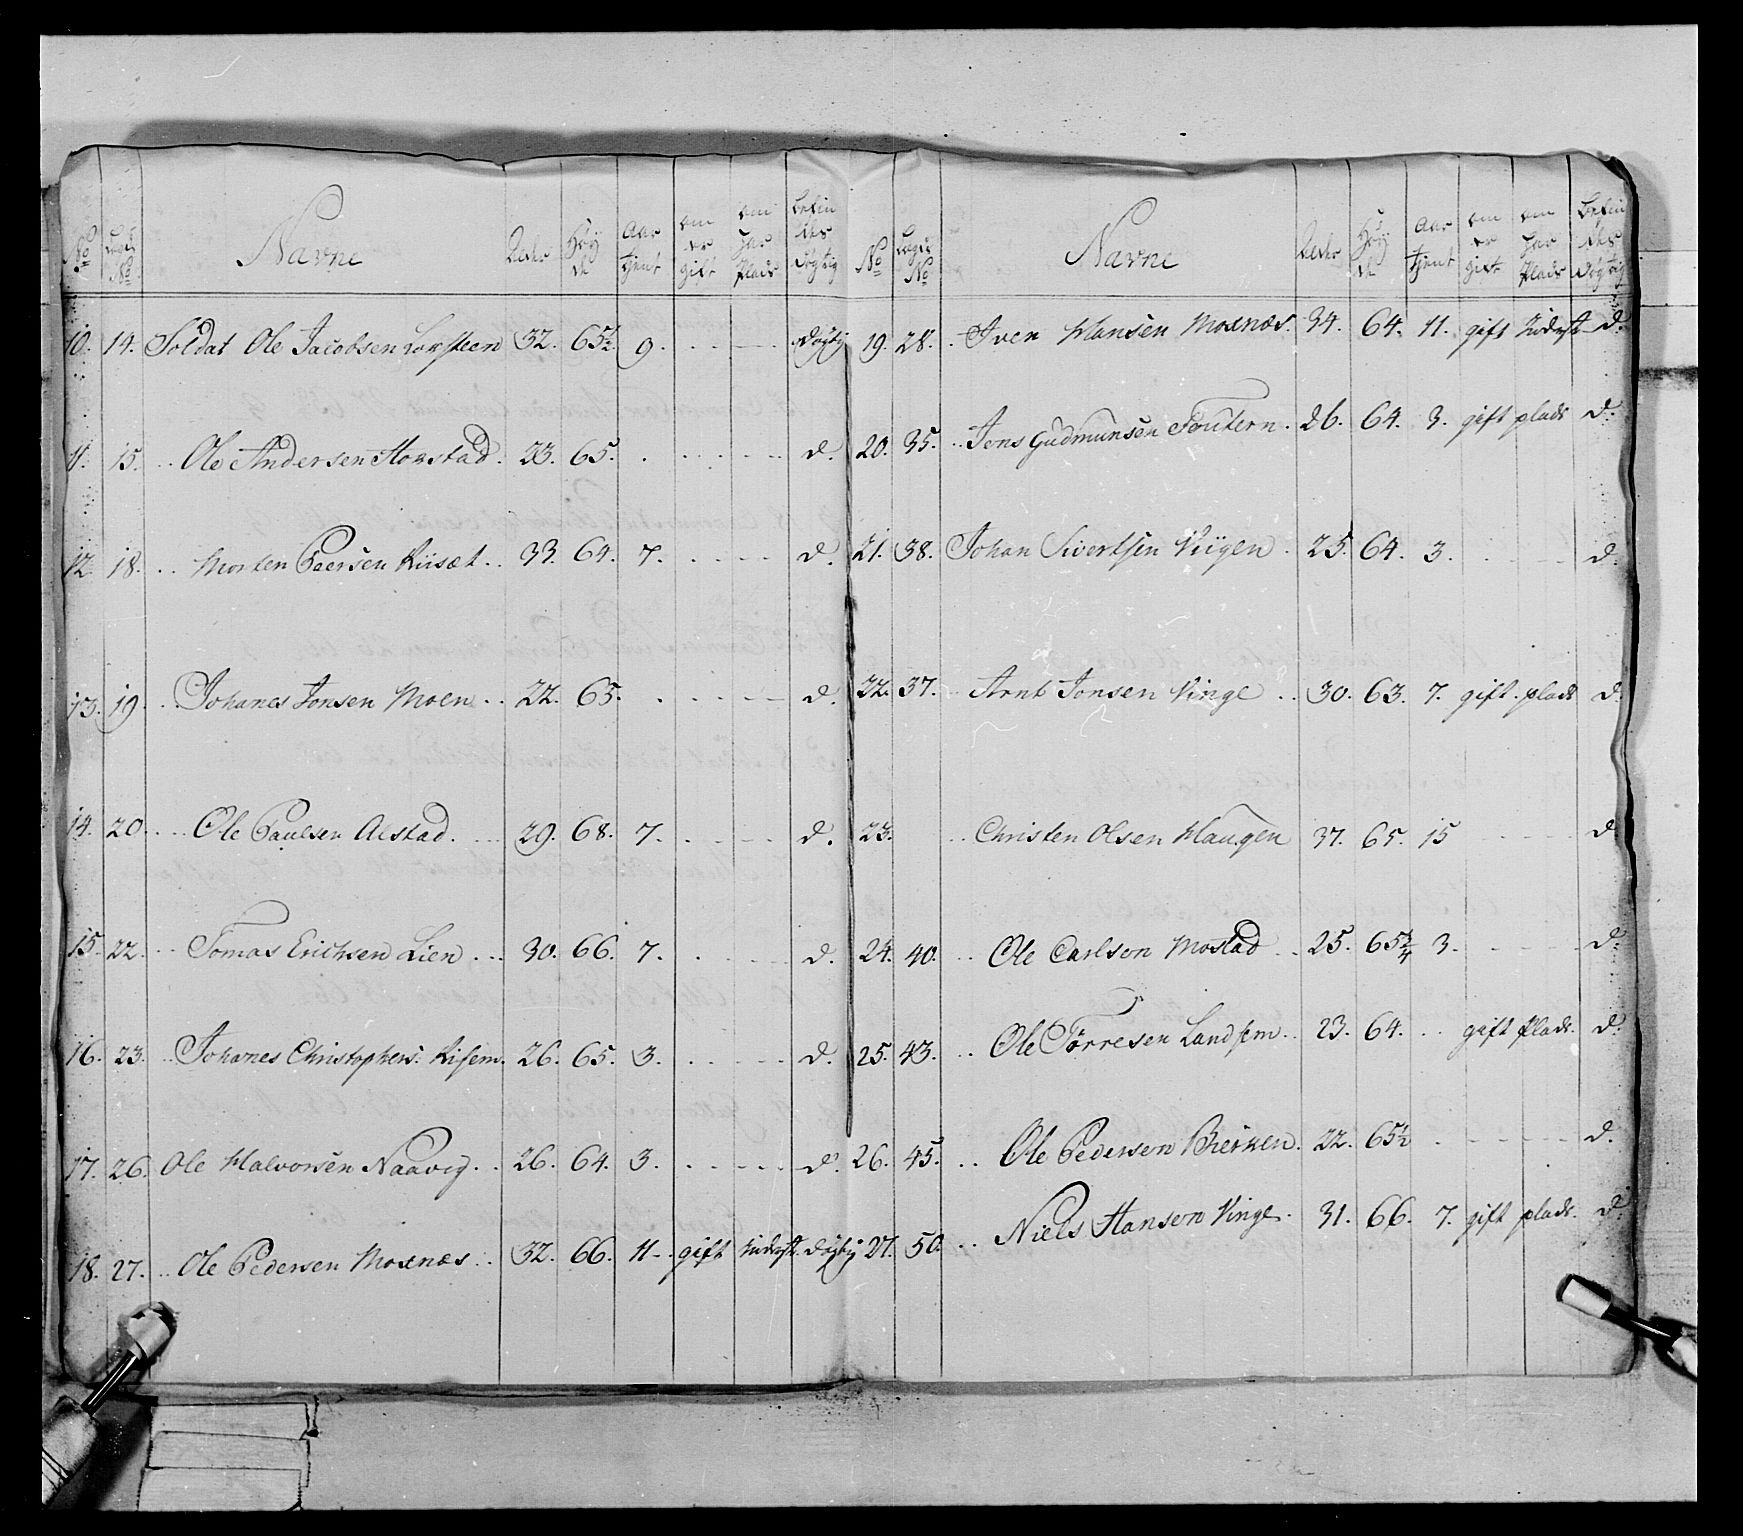 No Lægds No Navne Alder Høyde Aar tjent om er gift om har Plads befindes døgtig
10. 14. Soldat Ole Jacobsen Lorsteen 32. 65½ 9. døgtig
11. 15. Ole Andersen Horstad. 23. 65. d.
12. 18. Morten Paersen Riisæt. 33. 64. 7. d.
13. 19. Johanes Jonsen Moen 22. 65. d.
14. 20. Ole Paulsen Aldstad. 29. 68. 7. d.
15. 22. Tomas Erichsen Lien 30. 66. 7. d.
16. 23. Johanes Christophers. Risem. 26. 65. 3. d.
17. 26. Ole Halvorsen Naavig. 26. 64. 3. d.
18. 27. Ole Pedersen Moxnæs 32. 66. 11. gift Inderst. døgtig
No Lægds No Navne Alder Høyde Aar tjent om er gift om har Plads befindes døgtig
19. 28. Iver Hansen Moxnæs. 34. 64. 11. gift Inderst d.
20. 35. Jens Gudmunsen Foutern. 26. 64. 3. gift plads d.
21. 38. Johan Sivertsen Viigen 25. 64. 3. d.
22. 37. Arnt Jonsen Vinge 30. 63. 7. gift. plads d.
23. Christen Olsen Haugen 37. 65. 15 d.
24. 40. Ole Carlson Mostad 25. 65¾ 3. d.
25. 43. Ole Törresen Landsem 23. 64. gift Plads. d.
26. 45. Ole Pederson Bierken. 22. 65½ d.
27. 50. Niels Hanson Vinge. 31. 66. 7. gift plads. d.